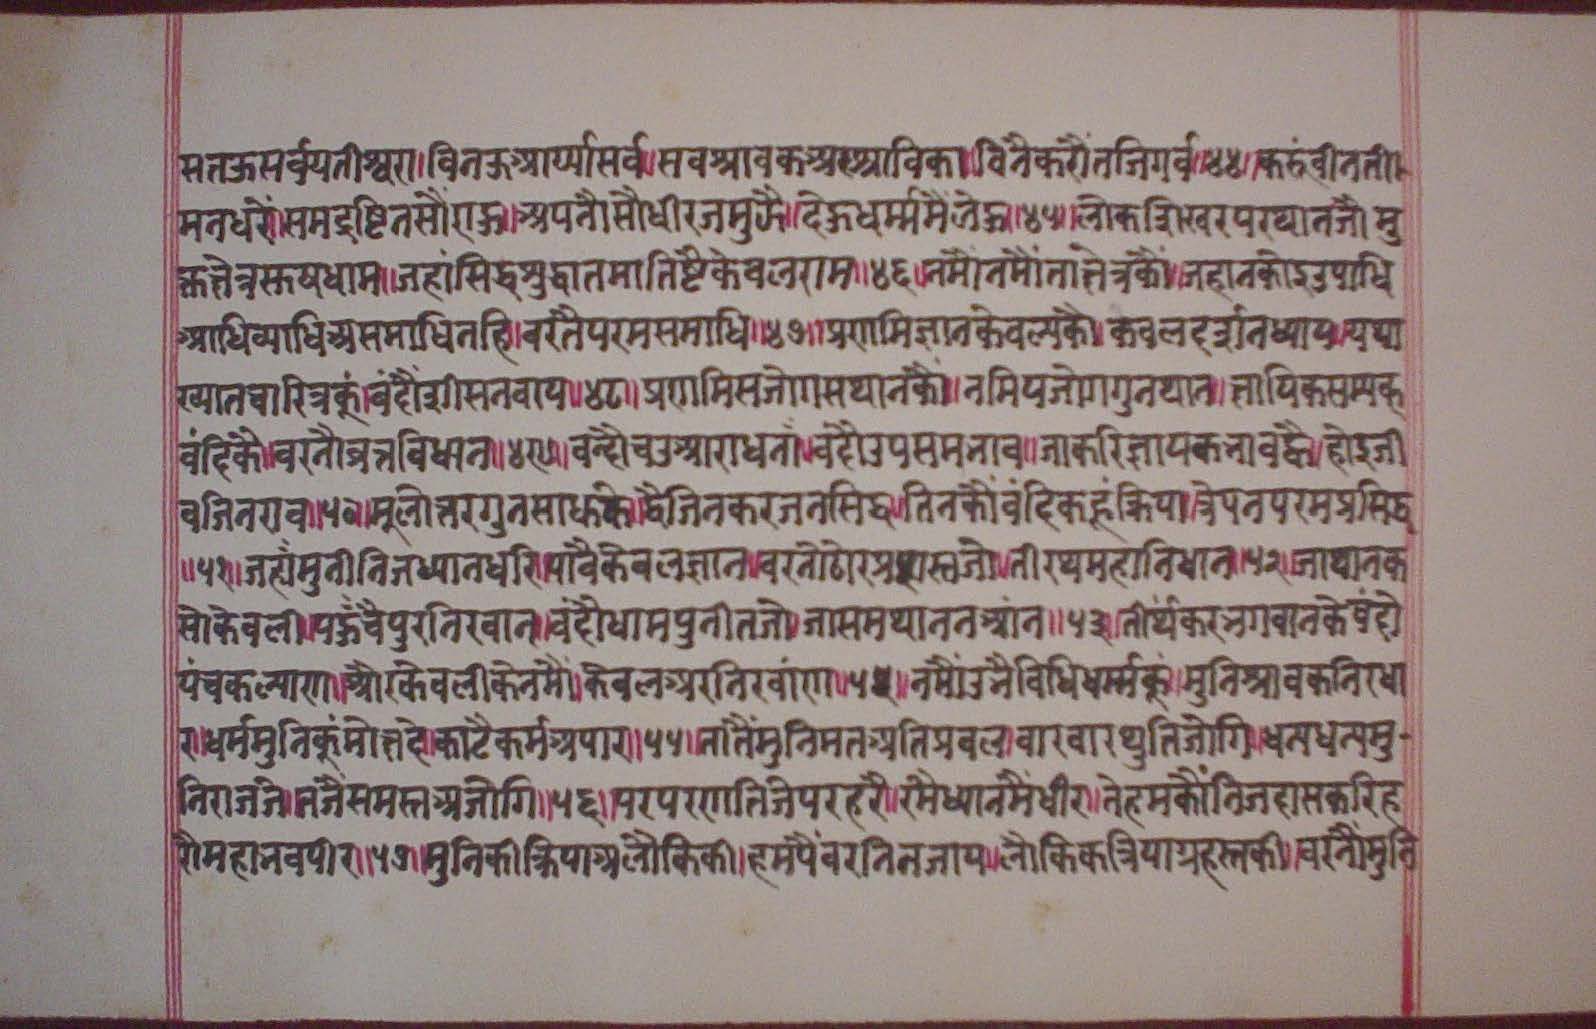 सतऊसर्वयतीश्वरा।विनऊआर्य्यासर्व॥सवश्रावकअरुश्राविका।विनैकरौंतजिगर्व॥४४॥करुंवीनती।
मनधरों।समदृष्टिनसौंराऊ॥अपनौसौधीरजमुझै।देऊधर्ममैंलेऊ॥४५॥लोकशिखरपरथानजौ।मु
क्तक्षेत्रसुखधाम॥जहांसिद्धशुद्धातमा।तिष्टैकेवलराम॥४६॥नमौंनमौंताक्षेत्रकौं।जहानकोइउपाधि
आधिव्याधिअसमाधिनहि।वरतैपरमसमाधि॥४७॥प्रणमिज्ञानकेवल्यकौं।केवलदर्शनध्याय॥यथा
ख्यातचारित्रकूं।वंदौंशीसनवाय॥४८॥प्रणमिसजोगसथानकौं।नमिअजोगगुनथान॥क्षायिकसम्यक
वंदिकै।वरनौंव्रतविधान॥४९॥वन्दौचउआराधनां।वंदौउपसमभाव॥जाकरिक्षायकभावह्वै।होइजी
वजिनराव॥५०॥मूलोत्तरगुनसाधके।ह्वैजिनकरजनसिद्ध॥तिनकौंवंदिकहूंक्रिया।त्रेपनपरमप्रसिद्ध
॥५१॥जहांमुनीनिजध्यानधरि।पावैकेवलज्ञान॥वरनोठोरप्रशस्तजो।तीरथमहानिधान॥५२॥जाथानक
सोकेवली।पहूंचैपुरनिरवान॥वंदौधामपुनीतजो।जासमथाननआंन॥५३॥तीर्थंकरभगवानके।वंदो
पंचकल्याण॥औरकेवलीकेनमौं।केवलअरनिरवांण॥५४॥नमौंउभैविधिधर्मकूं।मुनिश्रावकनिरधा
र॥धर्ममुनिकूंमोक्षदे।काटैकर्मअपार॥५५॥तातैंमुनिमतअतिप्रवल।वारवारथुतिजोगि॥धन्यधन्यमु-
निराजजे।तजैसमस्तअजोगि॥५६॥परपरणतिजेपरहरै।रमैध्यानमैंधीर॥तेहमकौंनिजदासकरि।ह
रौमहाभवपीर॥५७॥मुनिकीक्रियाअलौकिकी।हमपैंवरनिनजाय॥लौकिकक्रियाग्रहस्तकी।वरनौंमुनि